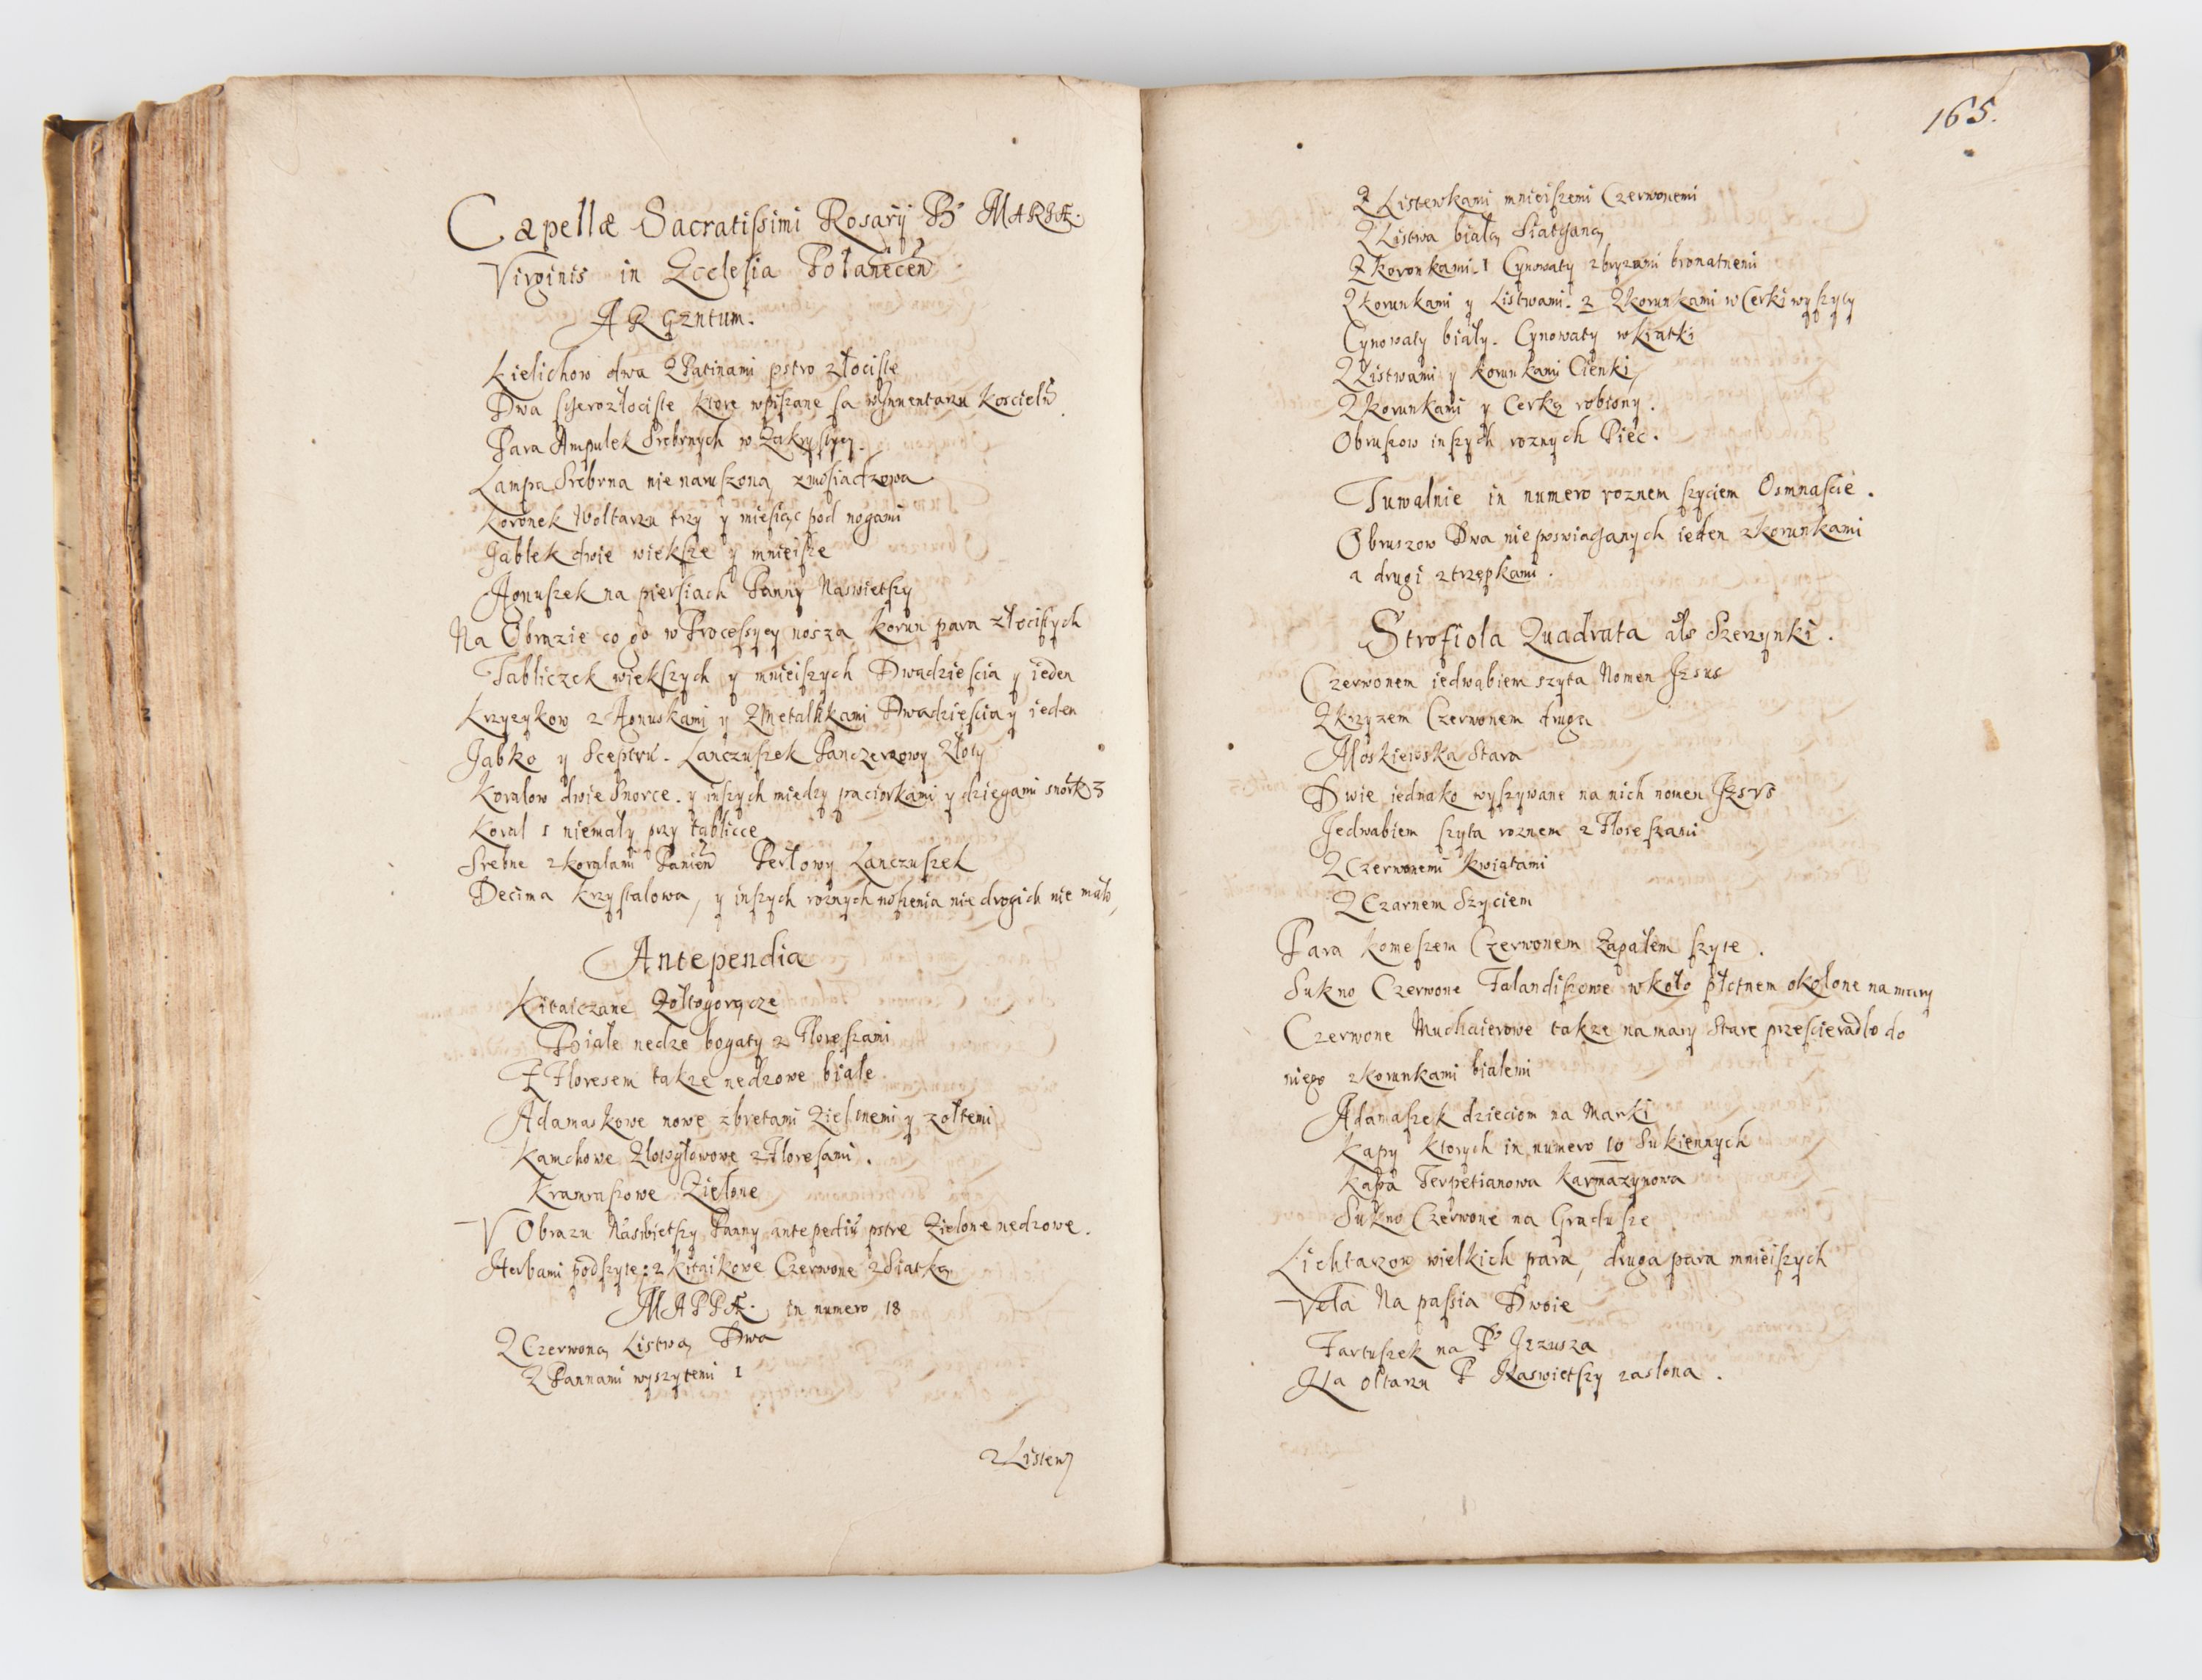 Capellæ Sacratissimi Rosarÿ B. MARIÆ.
Virginis in Ecclesia Połanecen̄
ARGENTUM.
Kielichow dwa Z Patinami pstro złociste
Dwa szczerozłociste ktore wpisane sa w Inuentarzu Koscieln̄
Para Ampułek Srebrnych w Zakrystyey.
Lampa Srebrna nie naruszona, z mosiadzowa
Koronek W ołtarzu trzy y miesiąc pod nogami
Jabłek dwie wieksze y mnieisze
Agnuszek na piersiach Panny Naswietszy
Na Obrazie co go w Processyey nosza Korun para złocistych
Tabliczek wiekszych y mnieiszych Dwadziescia y ieden
Krzyzykow z Agnuskami y Z Metalikami Dwadziescia y ieden
Jabko y Sceptrū. Lanczuszek Panczerzowy Złoty
Koralow dwie Snorce. y inszych miedzy paciorkami y dziegami snork 3
Koral 1 niemały przy tablicce
Srebne z koralami Panień Perłowy Lanczuszek
Decima Krzystalowa, y inszych roznych nosienia nie drogich nie mało,
Antependia
Kitaiczane Zołtogorące
Białe nedze bogaty z Floreszami
Z Floresem takze nedzowe białe
Adamaskowe nowe z bretami Zielonemi y zołtemi
Kamchowe Złotogłowowe z Floresami.
Kramraszowe Zielone
V Obrazu Naswietszy Panny antepediū pstre Zielone nedzowe.
Herbami podszyte: z Kitaikowe Czerwone z Siatką
MAPPÆ. in numero 18
Z Czerwoną Listwą Dwa
Z Pannami wyszytemi 1
z Listew
165.
Z Listewkami mnieiszemi Czerwonemi
Z Listwa białą Siatczaną
Z Koronkami. 1 Cynowaty z bryzami bronatnemi
Z Korunkami y Listwami. 2 Z Korunkami w Cerki wyszyty
Cynowaty biały. Cynowaty w Kratki
Z Listwami y Korunkami Cienki
Z Korunkami y Cerką robiony.
Obrusow inszych roznych Piec.
Tuwalnie in numero roznem szyciem Osmnascie.
Obruszow Dwa nie poswiaczanych ieden z Korunkami
a drugi z trzepkami.
Strofiola Quadrata als Szerzynki.
Czerwonem iedwabiem szyta Nomen Jesus
Z Krzyzem Czerwonem druga
Moskiewska Stara
Dwie iednako wyszywane na nich nomen Jesus
Jedwabiem szyta roznem z Floreszami
Z Czerwonemi Kwiatami
Z Czarnem Szyciem
Para Komeszem Czerwonem Zapałem szyte.
Sukno Czerwone Falandiszowe w koło płotnem okolone na mary
Czerwone Muchaierowe takze na mary Stare przescieradło do
niego z korunkami białemi
Adamaszek dzieciom na Marki
Kapy Ktorych in numero 10 Sukiennych
Kapa Terpetianowa Karmazynowa
Sukno Czerwone na Gradusze
Lichtarzow wielkich para, druga para mnieiszych
Vela Na passia Dwoie
Fartuszek na Pa Jezusza
Na ołtarzu P Naswietszy zaslona.